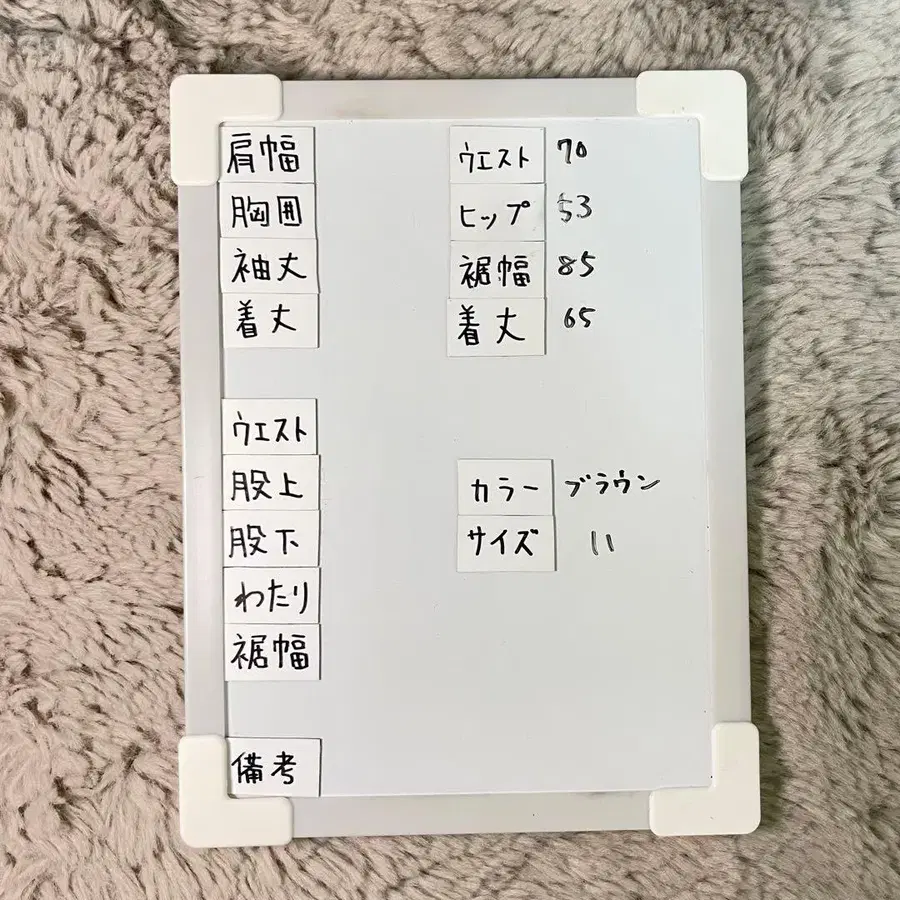 肩幅
胸囲
袖丈
着丈
ウエスト
股上
股下
わたり
裾幅
備考
ウエスト 70
ヒップ 53
裾幅 85
着丈 65
カラー ブラウン
サイズ 11